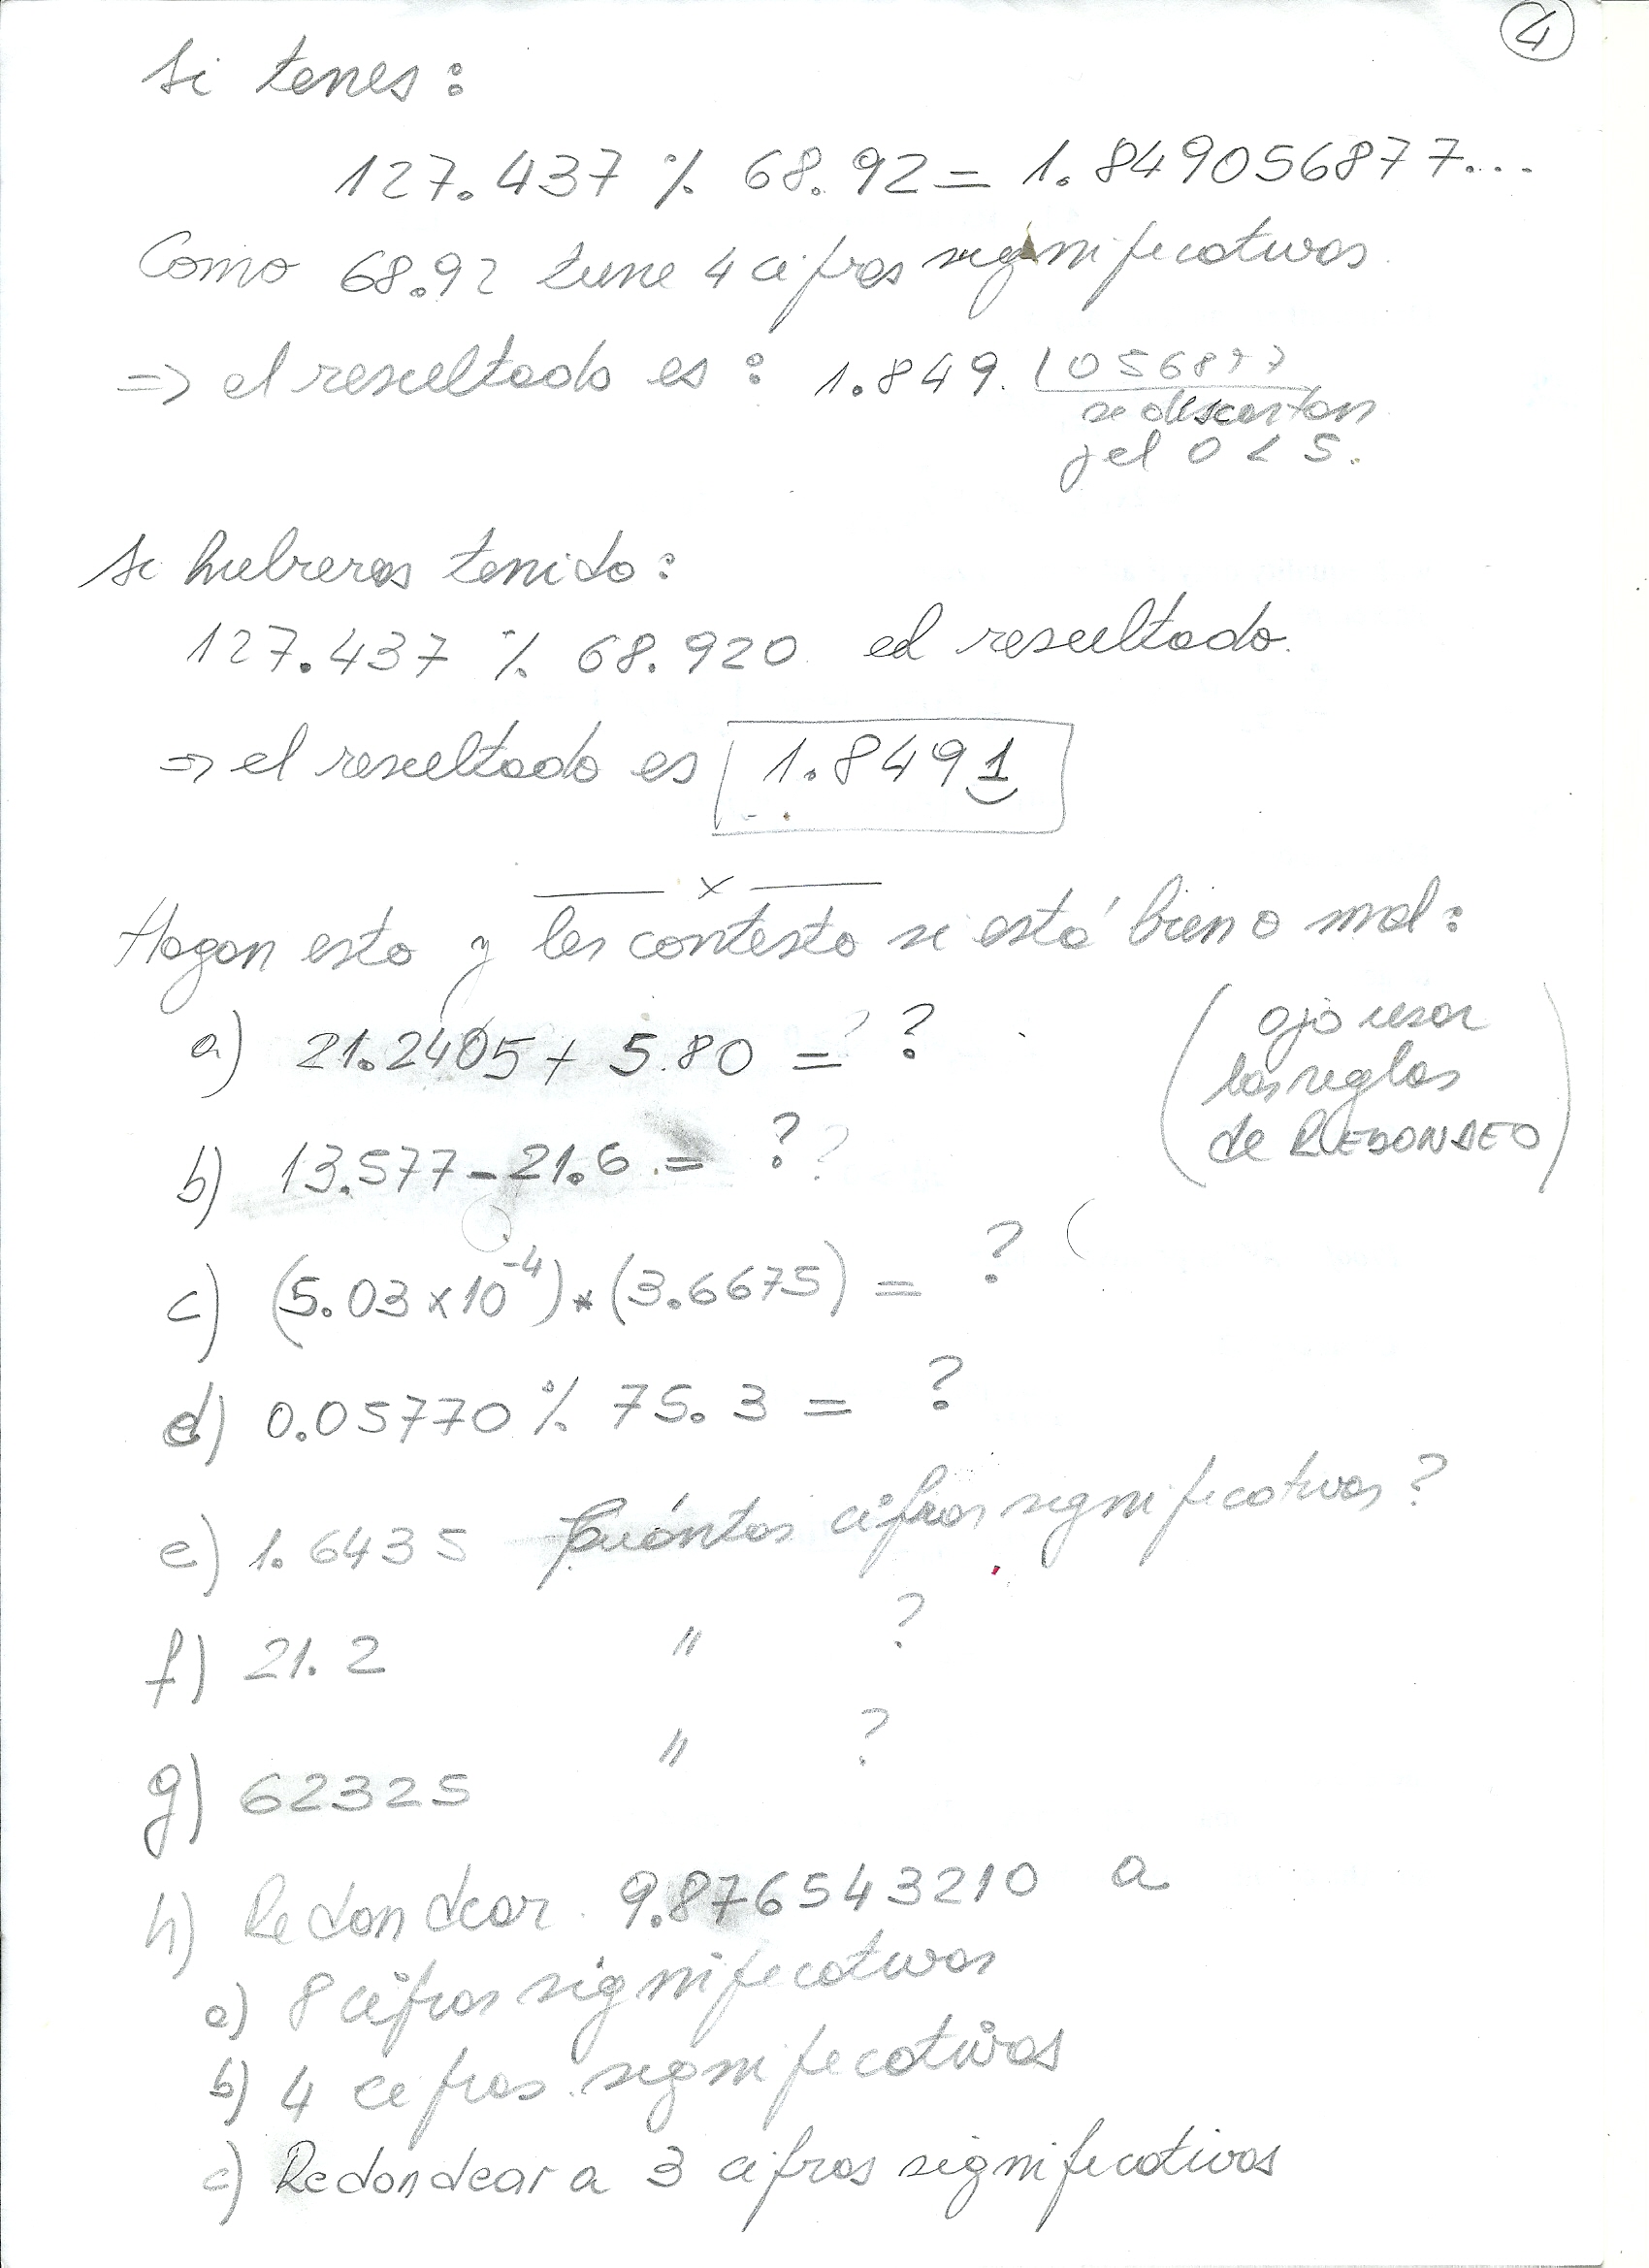 4
Si tenes:
127.437 % 68.92 = 1.849056877...
Como 68.92 tiene 4 cifras significativas
=> el resultado es: 1.849. 056877
se descartan
y el 0 < 5.
Si hubieras tenido:
127.437 % 68.920 el resultado.
=> el resultado es 1.8491
x
Hagan esto y les contesto si está bien o mal:
a) 21.2405 + 5.80 = ? ?
(ojo usar
las reglas
de REDONDEO)
b) 13.577 - 21.6 = ? ?
c) (5.03 x 10⁻⁴) * (3.6675) = ? (
d) 0.05770 % 75.3 = ?
e) 1.6435 Cuántas cifras significativas?
f) 21.2 " ?
g) 62325 " ?
h) Redondear 9.876543210 a
a) 8 cifras significativas
b) 4 cifras significativas
c) Redondear a 3 cifras significativas